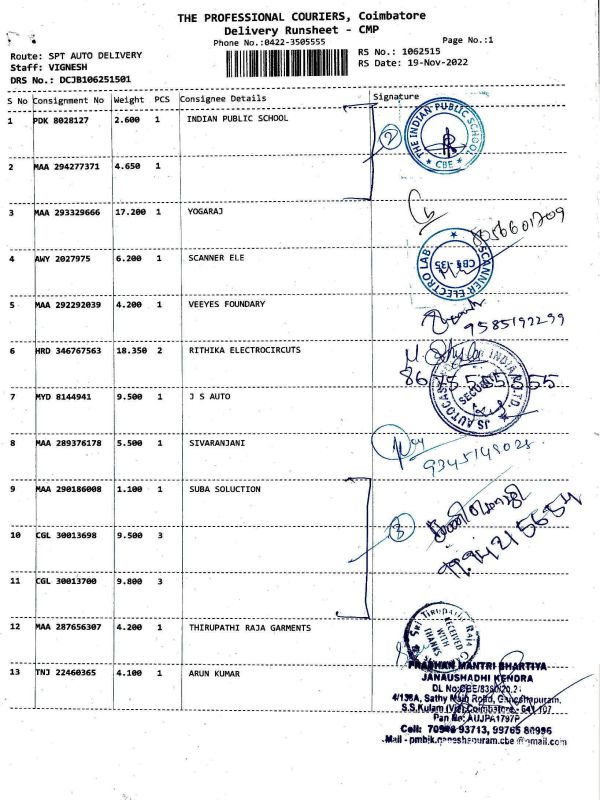 THE PROFESSIONAL COURIERS, Coimbatore
Delivery Runsheet - CMP
Phone No.:0422-3505555
Page No.:1
Route: SPT AUTO DELIVERY
RS No.: 1062515
Staff: VIGNESH
RS Date: 19-Nov-2022
DRS No.: DCJB106251501
S No Consignment No Weight PCS Consignee Details Signature
1 PDK 8028127 2.600 1 INDIAN PUBLIC SCHOOL
2
THE INDIAN PUBLIC SCHOOL
* CBE *
2 MAA 294277371 4.650 1
3 MAA 293329666 17.200 1 YOGARAJ
8056601709
4 AWY 2027975 6.200 1 SCANNER ELE
SCANNER ELECTRO LAB
CBE -35
5 MAA 292292039 4.200 1 VEEYES FOUNDARY
9585192299
6 HRD 346767563 18.350 2 RITHIKA ELECTROCIRCUTS
555555
7 MYD 8144941 9.500 1 J S AUTO
JS AUTOCAST INDIA LTD.
SECURITY
8 MAA 289376178 5.500 1 SIVARANJANI
9345149028
9 MAA 290186008 1.100 1 SUBA SOLUCTION
10 CGL 30013698 9.500 3
3
11 CGL 30013700 9.800 3
12 MAA 287656307 4.200 1 THIRUPATHI RAJA GARMENTS
Sri Tirupathi Raja
RECEIVED
WITH
THANKS
13 TNJ 22460365 4.100 1 ARUN KUMAR
PRADHAN MANTRI BHARTIYA
JANAUSHADHI KENDRA
4/138A, Sathy Main Road, Ganeshapuram,
S.S.Kulam (Via) Coimbatore - 641 107
Pan No: AUJPA1797P
Cell: 93713, 99765 80996
Mail - pmbjk.ganeshapuram.cbe@gmail.com